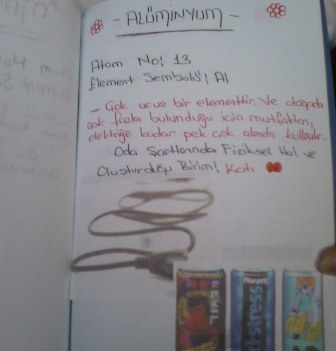 - ALÜMİNYUM -
Atom No: 13
Element Sembolü: Al
- Çok ucuz bir elementtir. Ve doğada
çok fazla bulunduğu için mutfaktan,
elektriğe kadar pek çok alanda kullanılır.
Oda Şartlarında Fiziksel Hal ve
Oluşturduğu Birim: Katı
EVIL
-stress